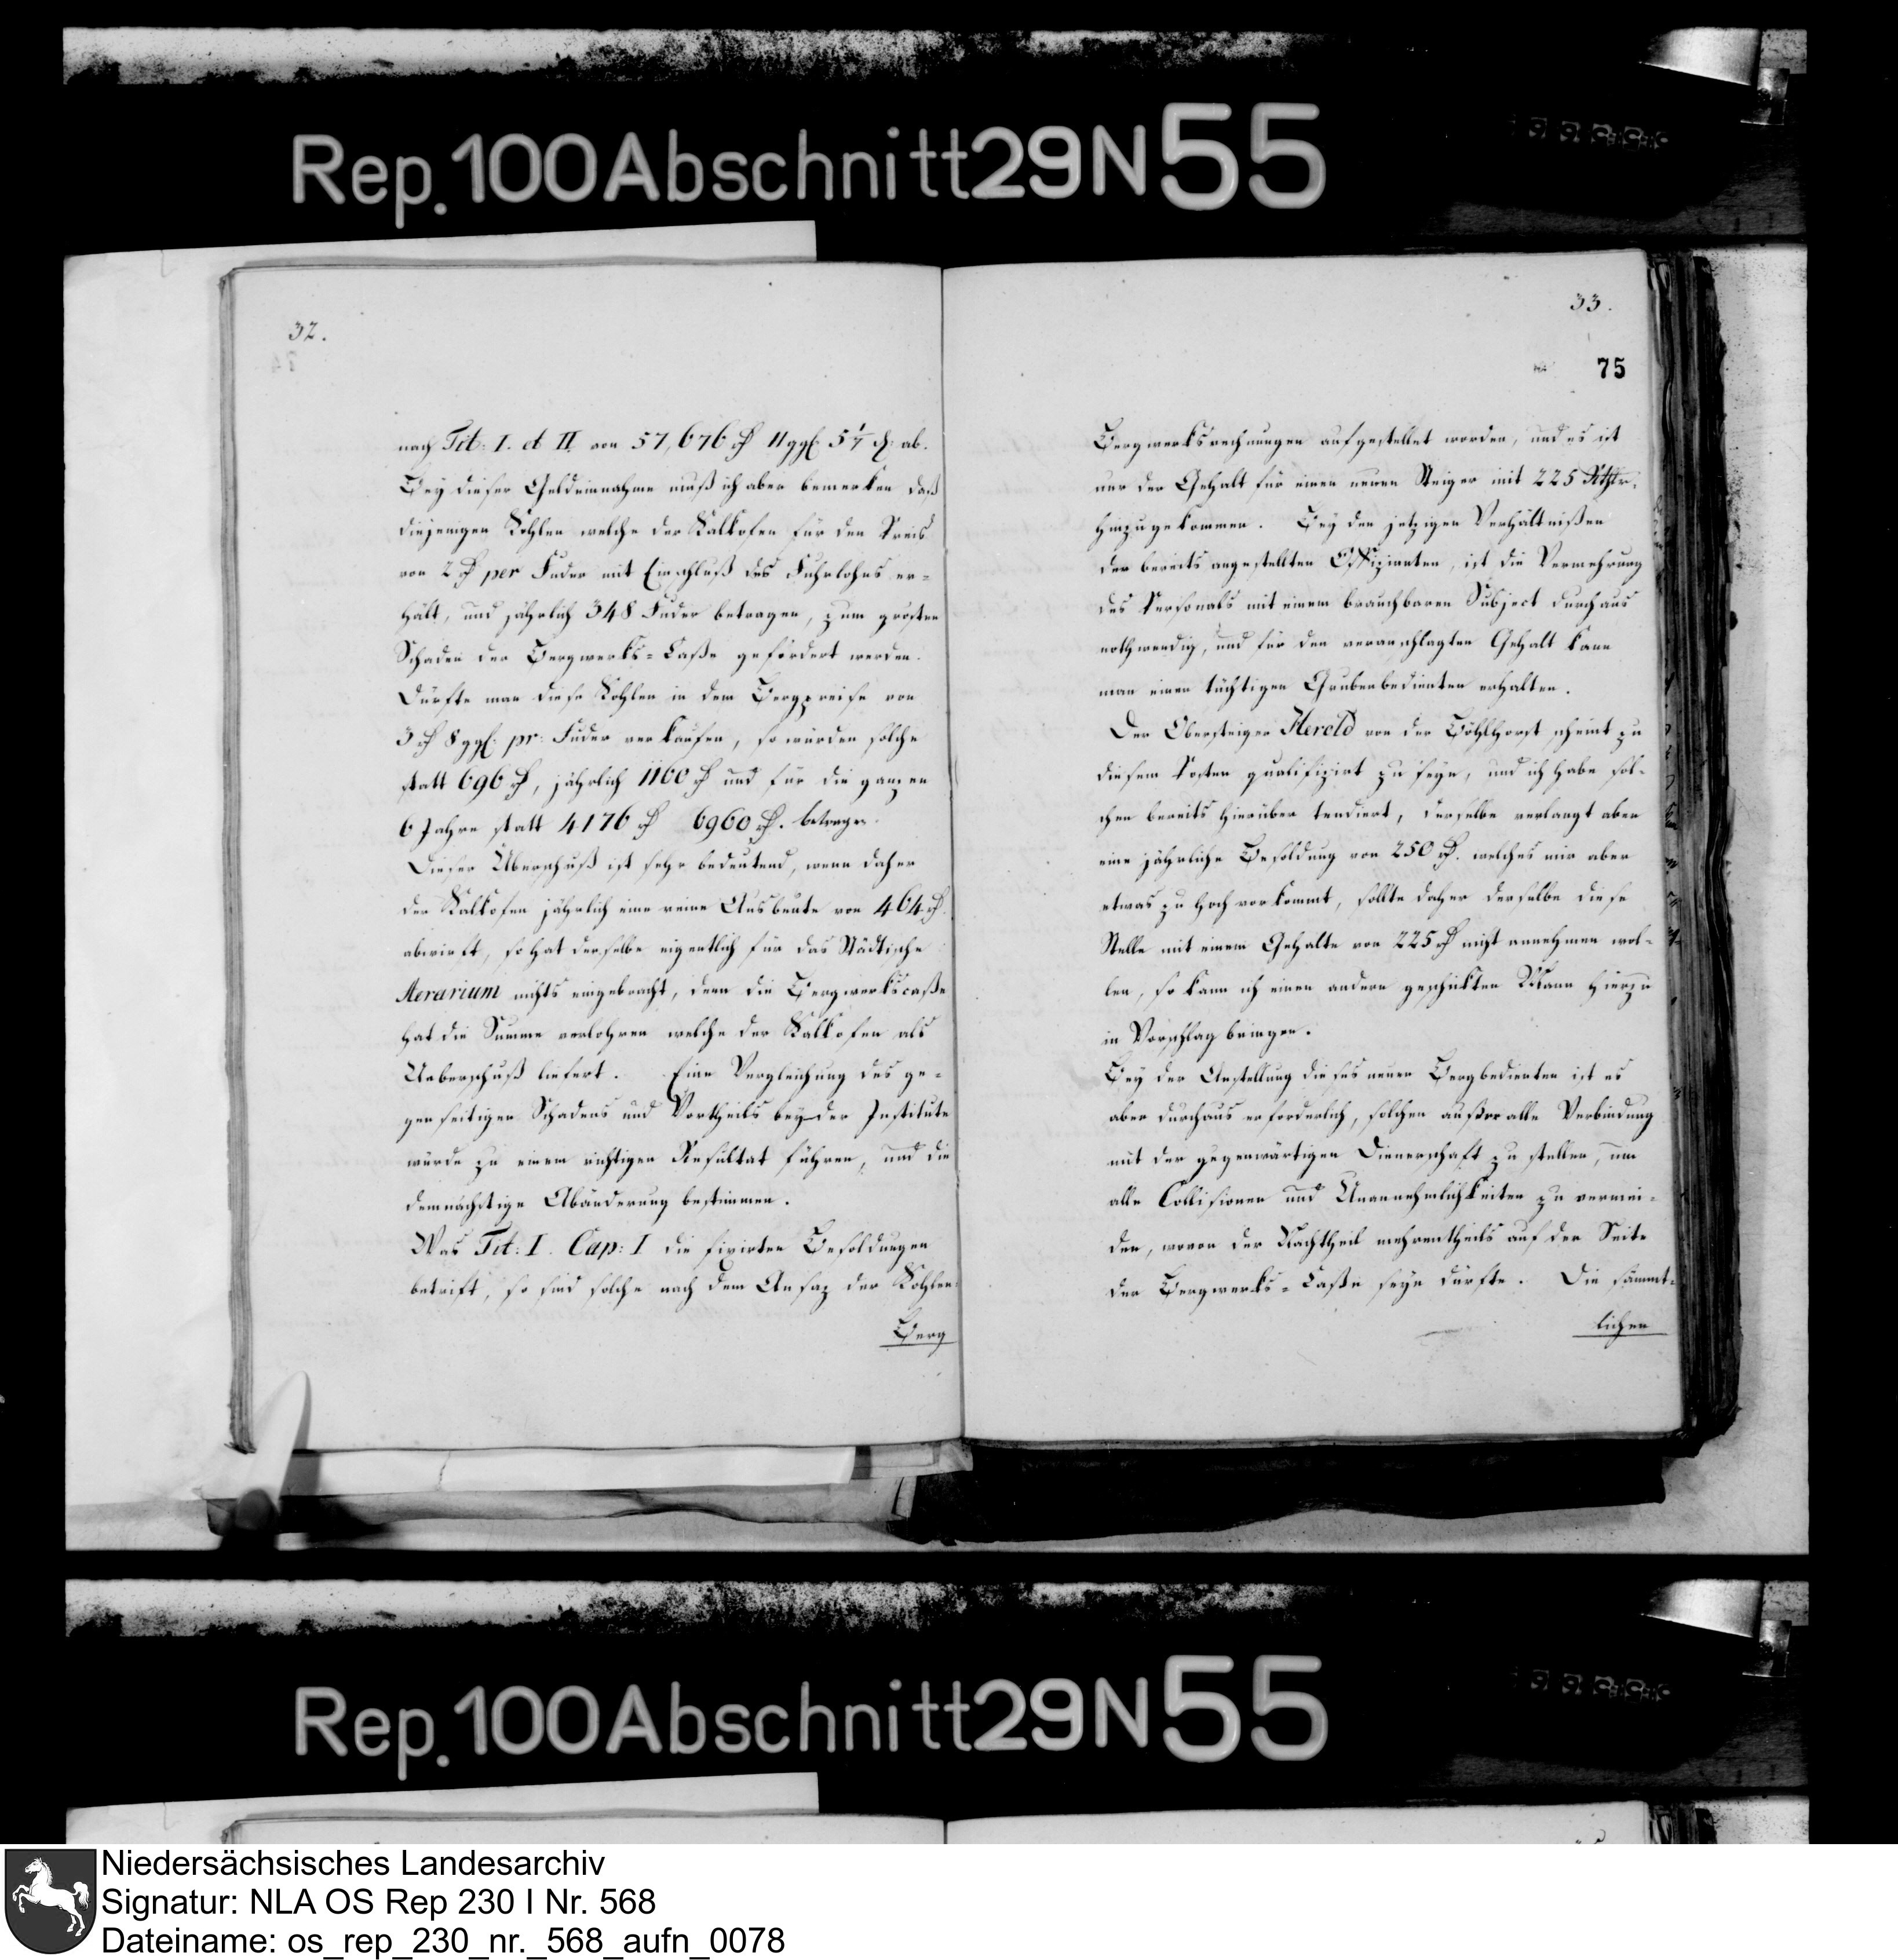 Rep. 100 Abschnitt 29 N 55
32.
nach Tit: I. et II. von 57,676 rℓ 11 ggℓ 5 1/7 ₰: ab.
Bey dieser Geldeinnahme muß ich aber bemerken daß
diejenigen Kohlen welche der Kalkofen für den Preis
von 2 rℓ per Fuder mit Einschluß des Fuhrlohns er=
hält, und jährlich 348 Fuder betragen, zum grösten
Schaden der Bergwerks=Caße gefördert werden.
Dürfte man diese Kohlen in dem Bergpreise von
3 rℓ 8 ggℓ. pr: Fuder verkaufen, so würden solche
statt 696 rℓ, jährlich 1160 rℓ und für die ganzen
6 Jahre statt 4176 rℓ 6960 rℓ. betragen.
Dieser Überschuß ist sehr bedeutend, wenn daher
der Kalkofen jährlich eine reine Ausbeute von 464 rℓ.
abwirft, so hat derselbe eigentlich für das Städtische
Aerarium nichts eingebracht, denn die Bergwerkscaße
hat die Summe verlohren welche der Kalkofen als
Ueberschuß liefert. Eine Vergleichung des ge=
genseitigen Schadens und Vortheils beyder Institute
würde zu einem richtigen Resultat führen, und die
demnächstige Abänderung bestimmen.
Was Tit: I. Cap: I die fixirten Besoldungen
betrift, so sind solche nach dem Ansaz der Kohlen=
Berg
33.
75
Bergwerksrechnungen aufgestellet worden, und es ist
nur der Gehalt für einen neuen Steiger mit 225 Rthlr.
hinzugekommen. Bey den jetzigen Verhältnißen
der bereits angestellten Offizianten, ist die Vermehrung
des Personals mit einem brauchbaren Subject durchaus
nothwendig, und für den veranschlagten Gehalt kann
man einen tüchtigen Grubenbedienten erhalten.
Der Obersteiger Herold von der Böhlhorst scheint zu
diesem Posten qualifizirt zu seyn, und ich habe sol=
chen bereits hierüber tendiert, derselbe verlangt aber
eine jährliche Besoldung von 250 rℓ. welches mir aber
etwas zu hoch vorkommt, sollte daher derselbe diese
Stelle mit einem Gehalte von 225 rℓ nicht annehmen wol=
len, so kann ich einen andern geschickten Mann hierzu
in Vorschlag bringen.
Bey der Anstellung dieses neuen Bergbedienten ist es
aber durchaus erforderlich, solchen außer alle Verbindung
mit der gegenwärtigen Dienerschaft zu stellen, um
alle Collisionen und Unannehmlichkeiten zu vermei=
den, wovon der Nachtheil mehrentheils auf der Seite
der Bergwerks=Caße seyn dürfte. Die sämmt=
lichen
Rep. 100 Abschnitt 29 N 55
Niedersächsisches Landesarchiv
Signatur: NLA OS Rep 230 I Nr. 568
Dateiname: os_rep_230_nr._568_aufn_0078